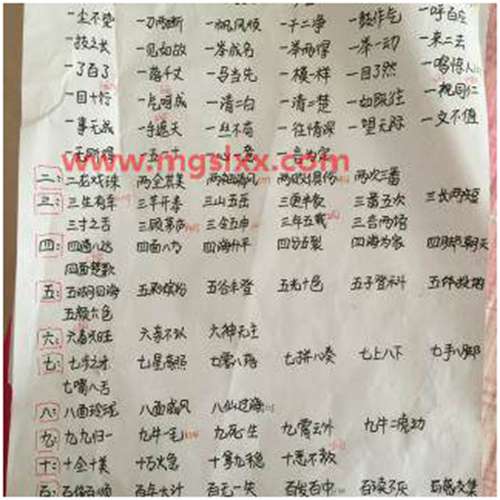 一尘不染 一刀两断 一帆风顺 一干二净 一鼓作气 一呼百应
一技之长 一见如故 一举成名 一举两得 一举一动 一来二去
一了百了 一落千丈 一马当先 一模一样 一目了然 一鸣惊人
一目十行 一气呵成 一清二白 一清二楚 一如既往 一视同仁
一事无成 一手遮天 一丝不苟 一往情深 一望无际 一文不值
www.mgslxx.com
二: 二龙戏珠 两全其美 两袖清风 两败俱伤 两次三番
三: 三生有幸 三羊开泰 三山五岳 三更半夜 三番五次 三长两短
三寸之舌 三顾茅庐 三令五申 三年五载 三言两语
四: 四通八达 四面八方 四海升平 四分五裂 四海为家 四脚朝天
四面楚歌
五: 五湖四海 五彩缤纷 五谷丰登 五光十色 五子登科 五体投地
五颜六色
六: 六畜兴旺 六亲不认 六神无主
七: 七步之才 七星高照 七零八落 七拼八凑 七上八下 七手八脚
七嘴八舌
八: 八面玲珑 八面威风 八仙过海
九: 九九归一 九牛一毛 九死一生 九霄云外 九牛二虎之力
十: 十全十美 十万火急 十拿九稳 十恶不赦
百: 百依百顺 百年大计 百无一失 百发百中 百读不厌